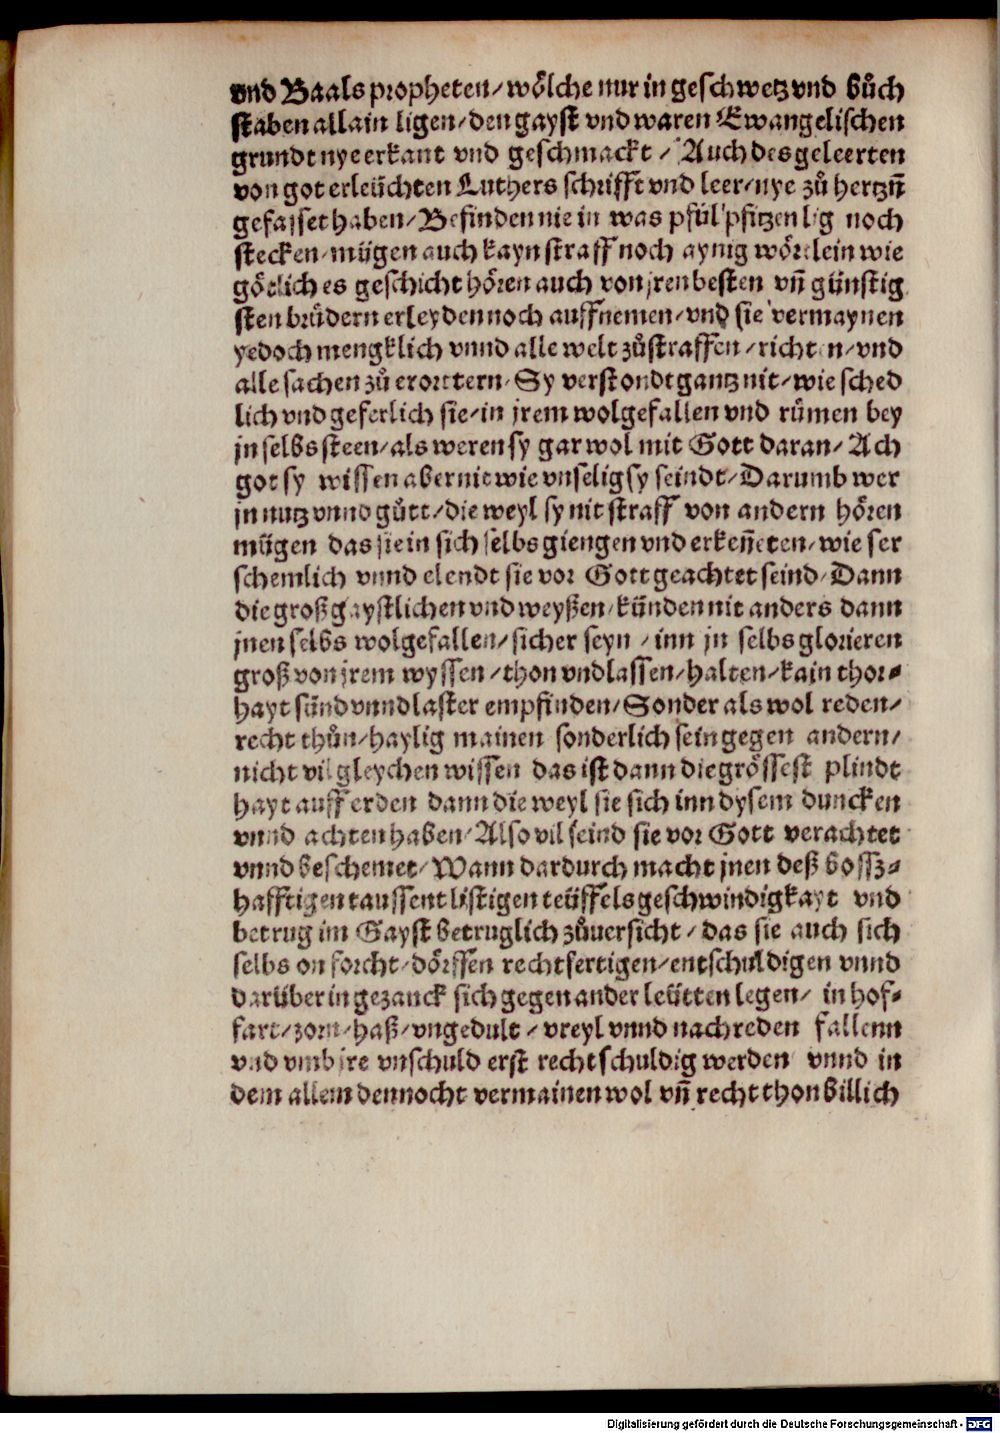 vnd Baals propheten/ wölche nur in geschwetz vnd bůch
staben allain ligen/ den gayst vnd waren Ewangelischen
grundt nye erkant vnd geschmackt/ Auch des geleerten
von got erleüchten Luthers schrifft vnd leer/ nye zů hertzn̄
gefasset haben/ Befinden nie in was pfül pfitzen lig noch
stecken/ mügen auch kayn straff noch aynig wörtlein wie
götlich es geschicht hören auch von jren besten vn̄ günstig
sten brüdern erleyden noch auffnemen/ vnd sie vermaynen
yedoch mengklich vnnd alle welt zůstraffen/ richten/ vnd
alle sachen zů erorttern/ Sy verstondt gantz nit/ wie sched
lich vnd geferlich sie/ in jrem wolgefallen vnd rümen bey
jn selbs steen/ als weren sy gar wol mit Gott daran/ Ach
got sy wissen aber nit wie vnselig sy seindt/ Darumb wer
jn nutz vnnd gůtt/ die weyl sy nit straff von andern hören
mügen das sie in sich selbs giengen vnd erken̄eten/ wie ser
schemlich vnnd elendt sie vor Gott geachtet seind/ Dann
die großgaystlichen vnd weyßen/ künden nit anders dann
jnen selbs wolgefallen/ sicher seyn/ inn jn selbs glorieren
groß von jrem wyssen/ thon vnd lassen/ halten/ kain thor-
hayt sünd vnnd laster empfinden/ Sonder als wol reden/
recht thůn/ haylig mainen sonderlich sein gegen andern/
nicht vil gleychen wissen das ist dann die grössest plindt
hayt auff erden dann die weyl sie sich inn dysem duncken
vnnd achten haben/ Also vil seind sie vor Gott verachtet
vnnd beschemet/ Wann dardurch macht jnen deß bossz-
hafftigen taussent listigen teüffels geschwindigkayt vnd
betrug im Gayst betruglich zůuersicht/ das sie auch sich
selbs on forcht/ dörffen rechtfertigen/ entschuldigen vnnd
darüber in gezanck sich gegen ander leütten legen/ in hof-
fart/ zorn/ haß/ vngedult/ vreyl vnnd nachreden fallenn
vnd vmb jre vnschuld erst recht schuldig werden vnnd in
dem allem dennocht vermainen wol vn̄ recht thon billich
Digitalisierung gefördert durch die Deutsche Forschungsgemeinschaft - DFG